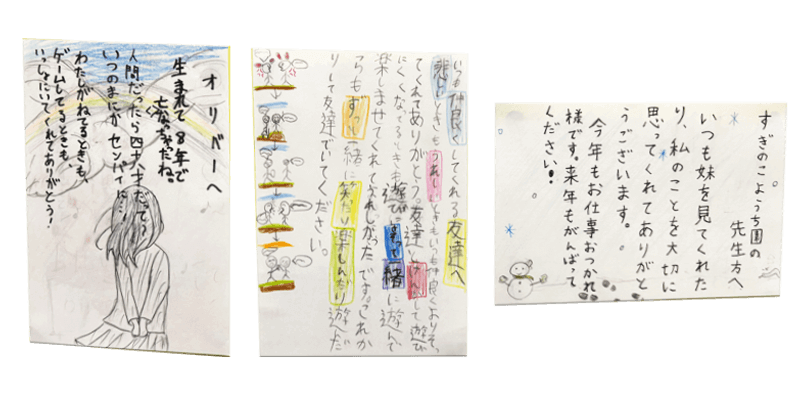 オリバーへ
生まれて8年で
亡くなっちゃたね。
人間だったら四十八才だって。
いつのまにかセンパイに…
わたしがねてるときも、
ゲームしてるときも、
いっしょにいてくれてありがとう!
いつも仲良くしてくれる友達へ
悲しいときもうれしいときもいつも仲良くよりそっ
てくれてありがとう。友達とけんかして遊び
にくくなってるときも ずっと一緒に遊んで
楽しませてくれてうれしかったです。これか
らもずっと一緒に笑ったり楽しんだり遊んだ
りして友達でいてください。
すぎのこようち園の
先生方へ
いつも妹を見てくれた
り、私のことを大切に
思ってくれてありがと
うございます。
今年もお仕事おつかれ
様です。来年もがんばって
ください!